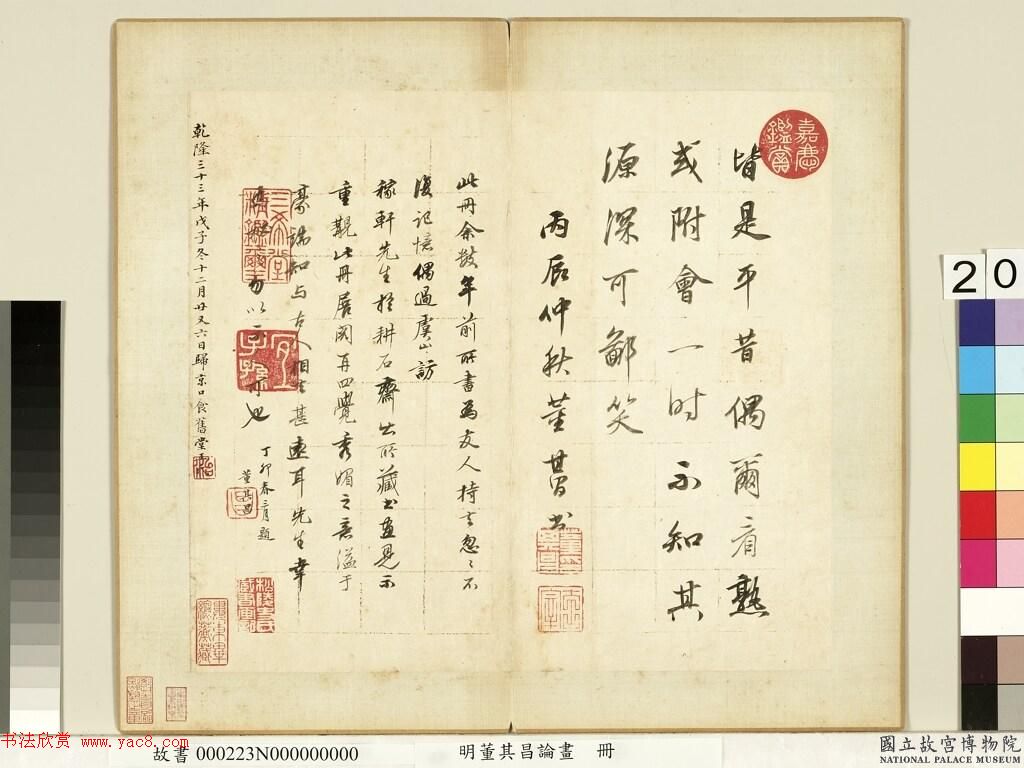 皆是平昔偶爾看熟
或附會一時不知其
源深可鄙笑
丙辰仲秋董其昌書
此冊余數年前所書為友人持去忽忽不
復記憶偶過虞山訪
稼軒先生於耕石齋出所藏書畫見示
重觀此冊展閱再四覺秀媚之意溢于
豪端知与古人相去甚遠耳先生幸
以示
也
丁卯春三月題
董其昌
乾隆三十三年戊子冬十二月廿又六日歸京口食舊堂
嘉慶鑑賞
三希堂精鑑璽
宜子孫
20
故書 000223N000000000
明董其昌論畫 冊
國立故宮博物院
NATIONAL PALACE MUSEUM
书法欣赏 www.yac8.com